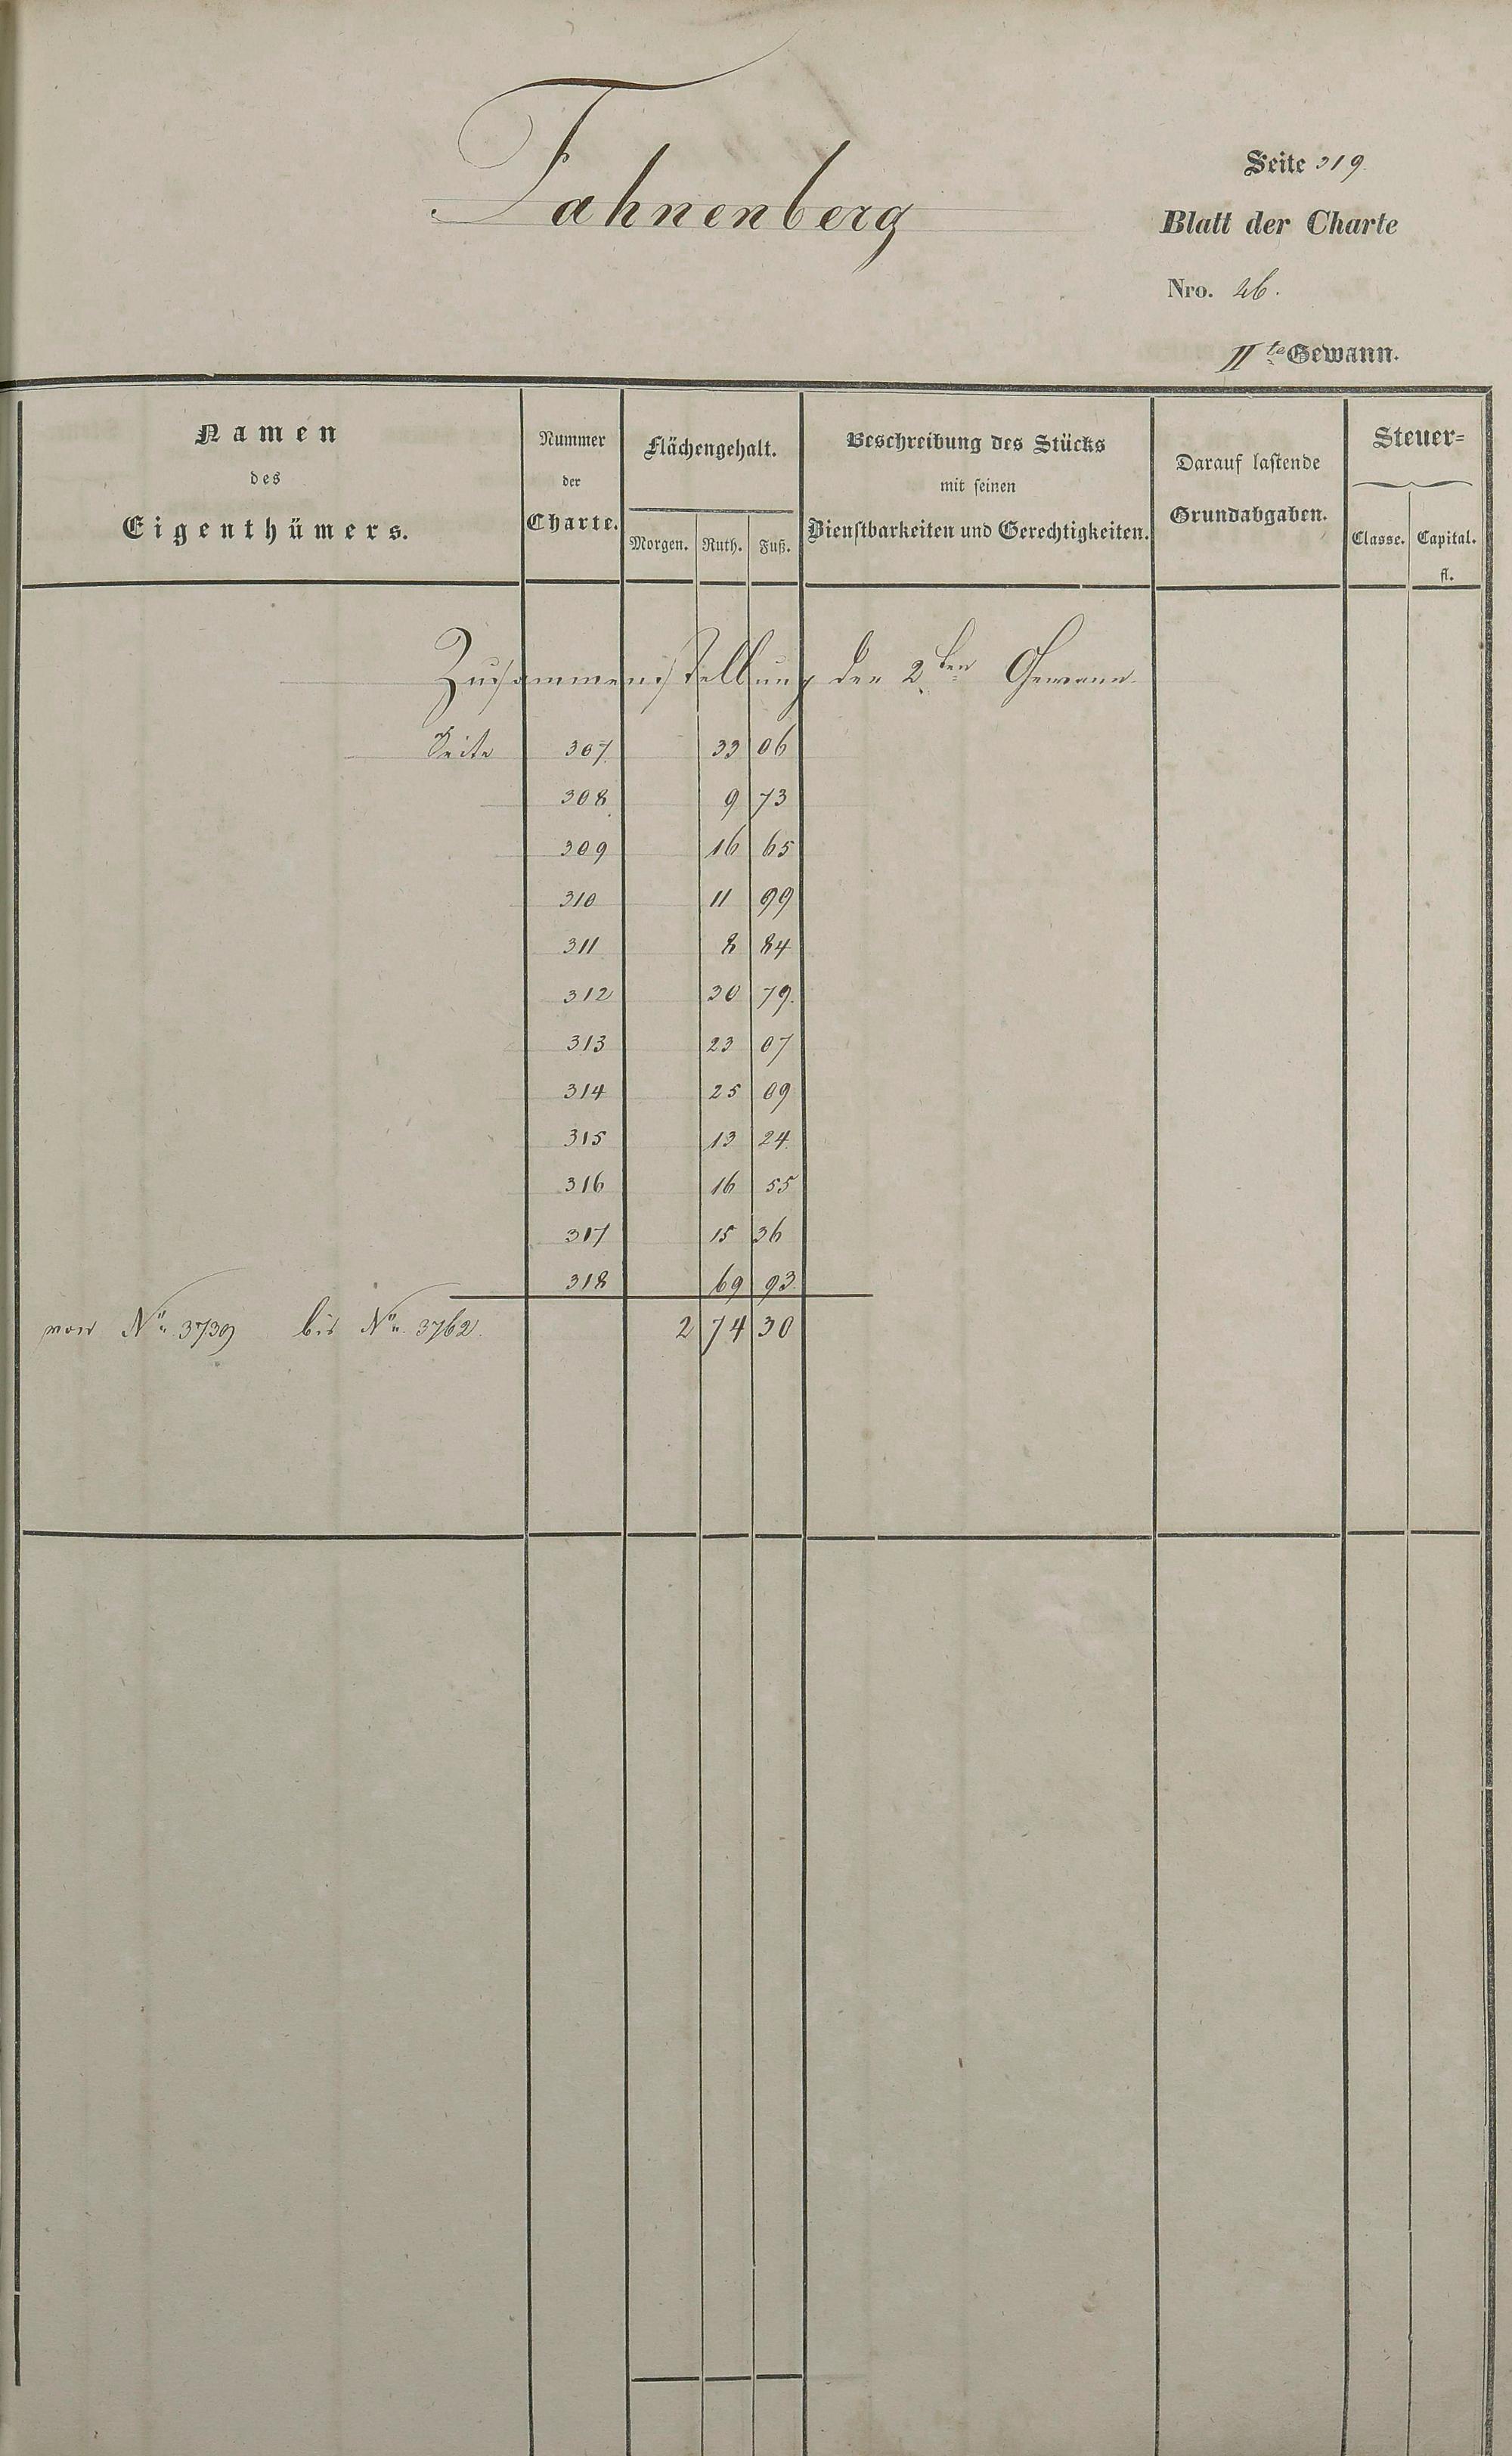 Fahnenberg
Seite 319.
Blatt der Charte
Nro. 26.
II te Gewann.
Namen des Eigenthümers.
Nummer der Charte.
Flächengehalt.
Morgen. Ruth. Fuß.
Beschreibung des Stücks mit seinen Dienstbarkeiten und Gerechtigkeiten.
Darauf lastende Grundabgaben.
Steuer=
Classe. Capital.
fl.
Zusammenstellung der 2ten Gewann.
Seite 307. 33 06
308 9 73
309 16 65
310 11 99
311 8 84
312 30 79.
313 23 07
314 25 09
315 13 24.
316 16 55
317 15 36
318 69 93.
von No. 3739 bis No. 3762. 2 74 30